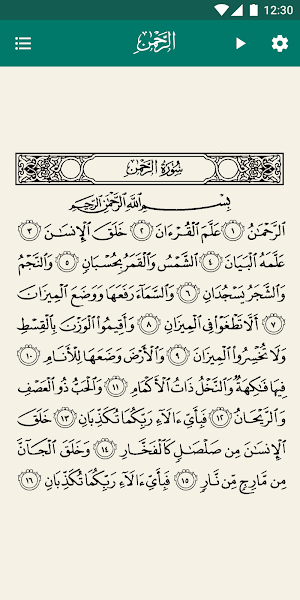 12:30
الرحمن
سُورَةُ الرَّحْمَٰن
بِسْمِ اللَّهِ الرَّحْمَٰنِ الرَّحِيمِ
الرَّحْمَٰنُ ١ عَلَّمَ الْقُرْءَانَ ٢ خَلَقَ الْإِنسَانَ ٣
عَلَّمَهُ الْبَيَانَ ٤ الشَّمْسُ وَالْقَمَرُ بِحُسْبَانٍ ٥ وَالنَّجْمُ
وَالشَّجَرُ يَسْجُدَانِ ٦ وَالسَّمَاءَ رَفَعَهَا وَوَضَعَ الْمِيزَانَ
٧ أَلَّا تَطْغَوْا فِي الْمِيزَانِ ٨ وَأَقِيمُوا الْوَزْنَ بِالْقِسْطِ
وَلَا تُخْسِرُوا الْمِيزَانَ ٩ وَالْأَرْضَ وَضَعَهَا لِلْأَنَامِ ١٠
فِيهَا فَاكِهَةٌ وَالنَّخْلُ ذَاتُ الْأَكْمَامِ ١١ وَالْحَبُّ ذُو الْعَصْفِ
وَالرَّيْحَانُ ١٢ فَبِأَيِّ ءَالَاءِ رَبِّكُمَا تُكَذِّبَانِ ١٣ خَلَقَ
الْإِنسَانَ مِن صَلْصَالٍ كَالْفَخَّارِ ١٤ وَخَلَقَ الْجَانَّ
مِن مَّارِجٍ مِّن نَّارٍ ١٥ فَبِأَيِّ ءَالَاءِ رَبِّكُمَا تُكَذِّبَانِ ١٦